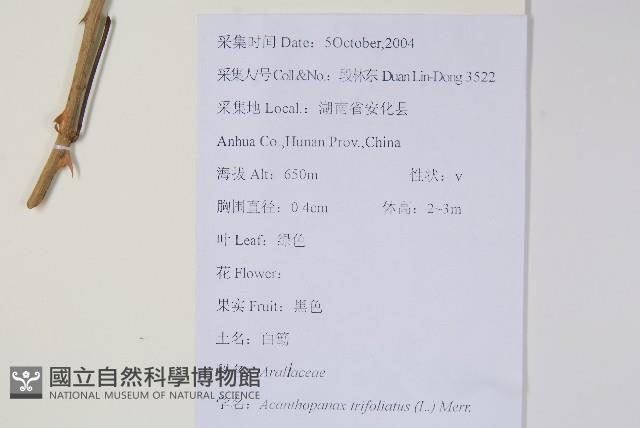 采集时间 Date：5October,2004
采集人/号 Coll.&No.：段林东 Duan Lin-Dong 3522
采集地 Local.：湖南省安化县
Anhua Co.,Hunan Prov.,China
海拔 Alt：650m 性状：v
胸围直径：0.4cm 体高：2~3m
叶 Leaf：绿色
花 Flower：
果实 Fruit：黑色
土名：白簕
Araliaceae
國立自然科學博物館
NATIONAL MUSEUM OF NATURAL SCIENCE
学名：Acanthopanax trifoliatus (L.) Merr.